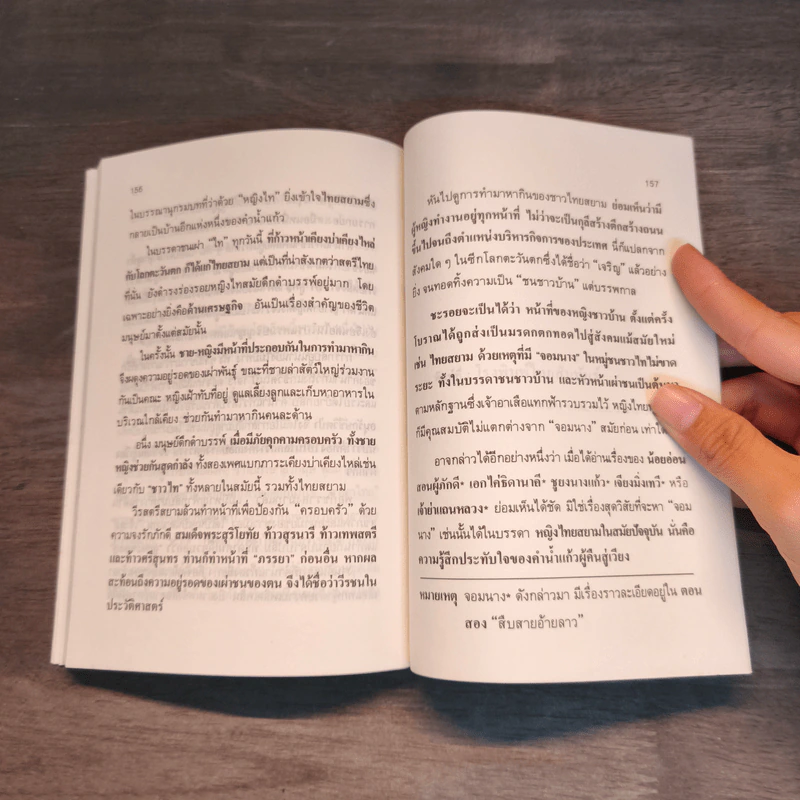 156
ในบรรณานุกรมบทที่ว่าด้วย “หญิงไท” ยิ่งเข้าใจไทยสยามซึ่ง
กลายเป็นบ้านอีกแห่งหนึ่งของคำน้ำแก้ว
ในบรรดาชนเผ่า “ไท” ทุกวันนี้ ที่ก้าวหน้าเคียงบ่าเคียงไหล่
กับโลกตะวันตก ก็ได้แก่ไทยสยาม แต่เป็นที่น่าสังเกตว่าสตรีไทย
ที่นั่น ยังดำรงร่องรอยหญิงไทสมัยดึกดำบรรพ์อยู่มาก โดย
เฉพาะอย่างยิ่งคือด้านเศรษฐกิจ อันเป็นเรื่องสำคัญของชีวิต
มนุษย์มาตั้งแต่สมัยนั้น
ในครั้งนั้น ชาย-หญิงมีหน้าที่ประกอบกันในการทำมาหากิน
จึงผดุงความอยู่รอดของเผ่าพันธุ์ ขณะที่ชายล่าสัตว์ใหญ่ร่วมงาน
กันเป็นคณะ หญิงเฝ้าทับที่อยู่ ดูแลเลี้ยงลูกและเก็บหาอาหารใน
บริเวณใกล้เคียง ช่วยกันทำมาหากินคนละด้าน
อนึ่ง มนุษย์ดึกดำบรรพ์ เมื่อมีภัยคุกคามครอบครัว ทั้งชาย
หญิงช่วยกันสุดกำลัง ทั้งสองเพศแบกภาระเคียงบ่าเคียงไหล่เช่น
เดียวกับ “ชาวไท” ทั้งหลายในสมัยนี้ รวมทั้งไทยสยาม
วีรสตรีสยามล้วนทำหน้าที่เพื่อป้องกัน “ครอบครัว” ด้วย
ความจงรักภักดี สมเด็จพระสุริโยทัย ท้าวสุรนารี ท้าวเทพสตรี
และท้าวศรีสุนทร ท่านก็ทำหน้าที่ “ภรรยา” ก่อนอื่น หากผล
สะท้อนถึงความอยู่รอดของเผ่าชนของตน จึงได้ชื่อว่าวีรชนใน
ประวัติศาสตร์
157
หันไปดูการทำมาหากินของชาวไทยสยาม ย่อมเห็นว่ามี
ผู้หญิงทำงานอยู่ทุกหน้าที่ ไม่ว่าจะเป็นกุลีสร้างตึกสร้างถนน
ขึ้นไปจนถึงตำแหน่งบริหารกิจการของประเทศ นี่ก็แปลกจาก
สังคมใด ๆ ในซีกโลกตะวันตกซึ่งได้ชื่อว่า “เจริญ” แล้วอย่าง
ยิ่ง จนทอดทิ้งความเป็น “ชนชาวบ้าน” แต่บรรพกาล
ชะรอยจะเป็นได้ว่า หน้าที่ของหญิงชาวบ้าน ตั้งแต่ครั้ง
โบราณได้ถูกส่งเป็นมรดกตกทอดไปสู่สังคมแม้สมัยใหม่
เช่น ไทยสยาม ด้วยเหตุที่มี “จอมนาง” ในหมู่ชนชาวไทไม่ขาด
ระยะ ทั้งในบรรดาชนชาวบ้าน และหัวหน้าเผ่าชนเป็นต้นมา
ตามหลักฐานซึ่งเจ้าอาเสือแทกฟ้ารวบรวมไว้ หญิงไทย
ก็มีคุณสมบัติไม่แตกต่างจาก “จอมนาง” สมัยก่อน เท่าใด
อาจกล่าวได้อีกอย่างหนึ่งว่า เมื่อได้อ่านเรื่องของ น้อยอ่อน
สอนผู้ภักดี* เอกไค้ธิดานาลี* ชูยงนางแก้ว* เจียงมิ่งเทวี* หรือ
เจ้าย่าแถนหลวง* ย่อมเห็นได้ชัด มิใช่เรื่องสุดวิสัยที่จะหา “จอม
นาง” เช่นนั้นได้ในบรรดา หญิงไทยสยามในสมัยปัจจุบัน นั่นคือ
ความรู้สึกประทับใจของคำน้ำแก้วผู้คืนสู่เวียง
หมายเหตุ จอมนาง* ดังกล่าวมา มีเรื่องราวละเอียดอยู่ใน ตอน
สอง “สืบสายอ้ายลาว”